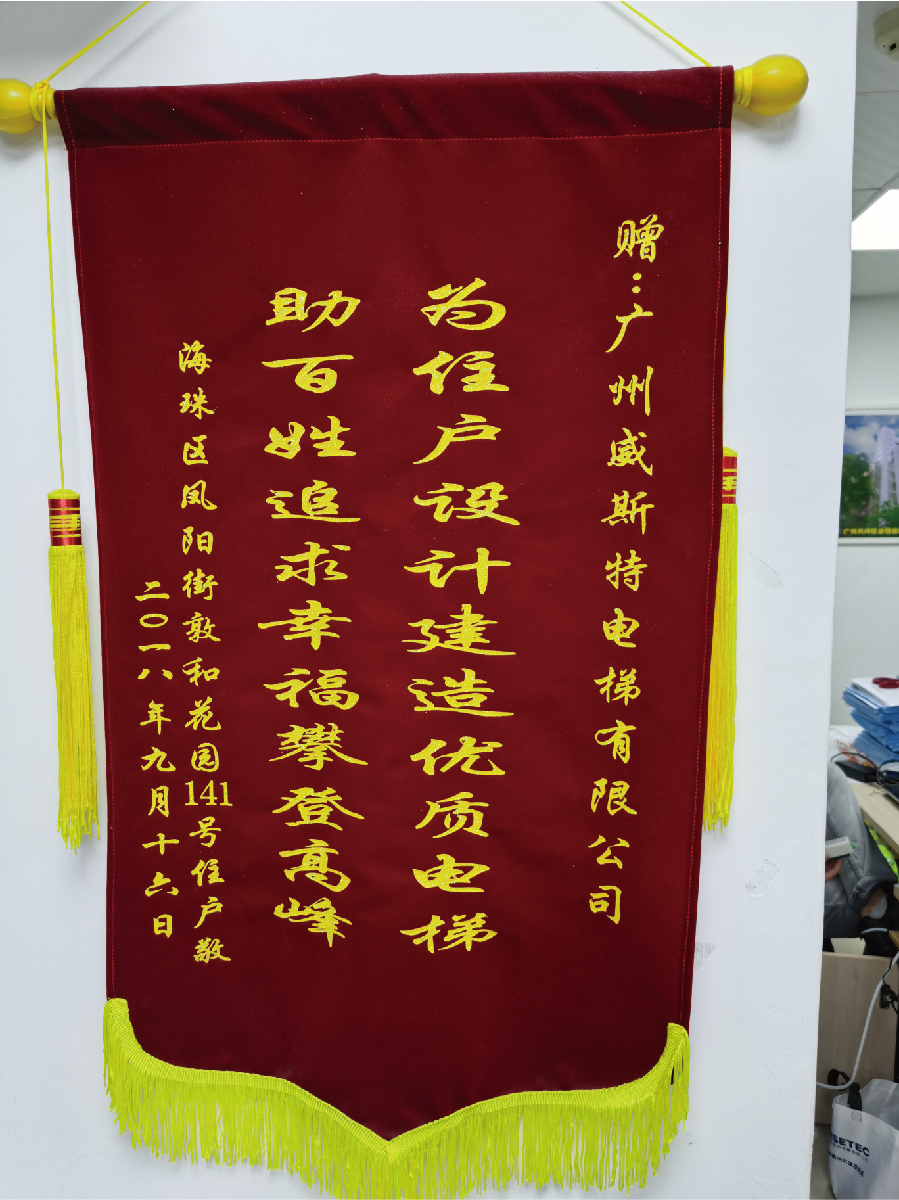 赠：广州威斯特电梯有限公司
为住户设计建造优质电梯
助百姓追求幸福攀登高峰
海珠区凤阳街敦和花园141号住户敬
二〇一八年九月十六日
SETEC